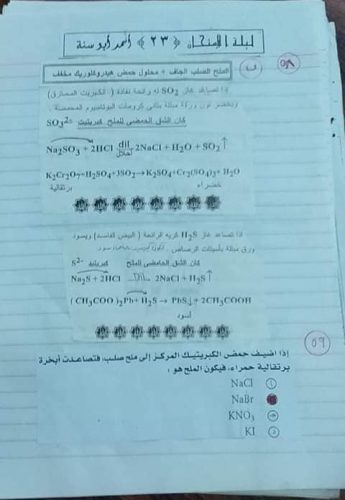 ليلة الامتحان ﴿٢٣﴾ أحمد أبو سنة
٥٨
الملح الصلب الجاف + محلول حمض هيدروكلوريك مخفف
إذا تصاعد غاز SO₂ له رائحة نفاذة (الكبريت المحترق)
ويخضر لون ورقة مبللة بثانى كرومات البوتاسيوم المحمضة
كان الشق الحمضي للملح كبريتيت SO₃²⁻
Na₂SO₃ + 2HCl dil احلال 2NaCl + H₂O + SO₂↑
K₂Cr₂O₇+H₂SO₄+3SO₂→K₂SO₄+Cr₂(SO₄)₃+ H₂O
برتقالية خضراء
إذا تصاعد غاز H₂S كريه الرائحة (البيض الفاسد) ويسود
ورق مبللة بأسيتات الرصاص
كان الشق الحامضى للملح كبريتيد S²⁻
Na₂S + 2HCl dil 2NaCl + H₂S↑
(CH₃COO)₂Pb+ H₂S → PbS↓ + 2CH₃COOH
أسود
٥٩
إذا اضيف حمض الكبريتيك المركز إلى ملح صلب، فتصاعدت أبخرة
برتقالية حمراء، فيكون الملح هو :
NaCl ا
NaBr
KNO₃ ج
KI د